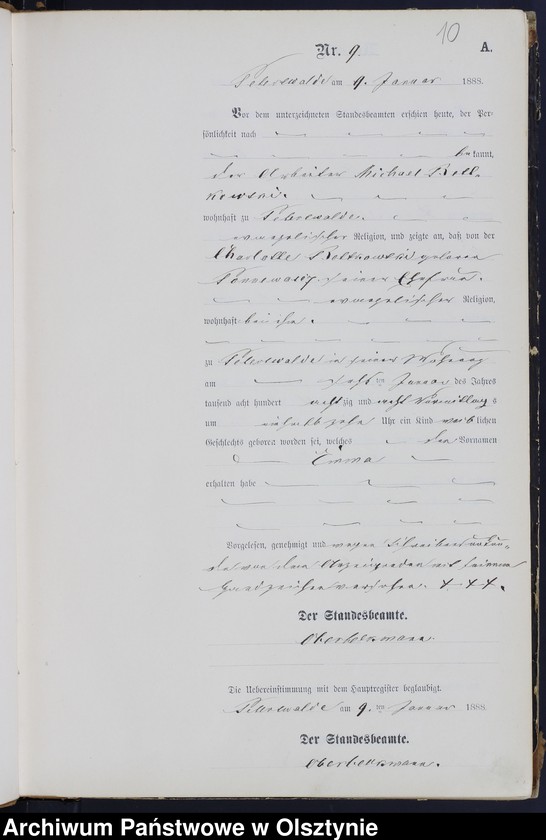 10
Nr. 9.
A.
Peterswalde am 9. Januar 1888.
Vor dem unterzeichneten Standesbeamten erschien heute, der Per-
sönlichkeit nach
bekannt,
der Arbeiter Michael
wohnhaft zu Peterswalde.
evangelischer Religion, und zeigte an, daß von der
Charlotte geborene
seiner Ehefrau.
evangelischer Religion,
wohnhaft bei ihm.
zu Peterswalde in seiner Wohnung
am Januar des Jahres
tausend acht hundert achtzig und acht Vormittags
um zehn Uhr ein Kind weiblichen
Geschlechts geboren worden sei, welches den Vornamen
Emma
erhalten habe
Vorgelesen, genehmigt und wegen Schreibensunkun-
de von dem Anzeigenden mit seinem
Handzeichen versehen. + + +.
Der Standesbeamte.
Die Uebereinstimmung mit dem Hauptregister beglaubigt.
Peterswalde am 9. ten Januar 1888
Der Standesbeamte.
Archiwum Państwowe w Olsztynie